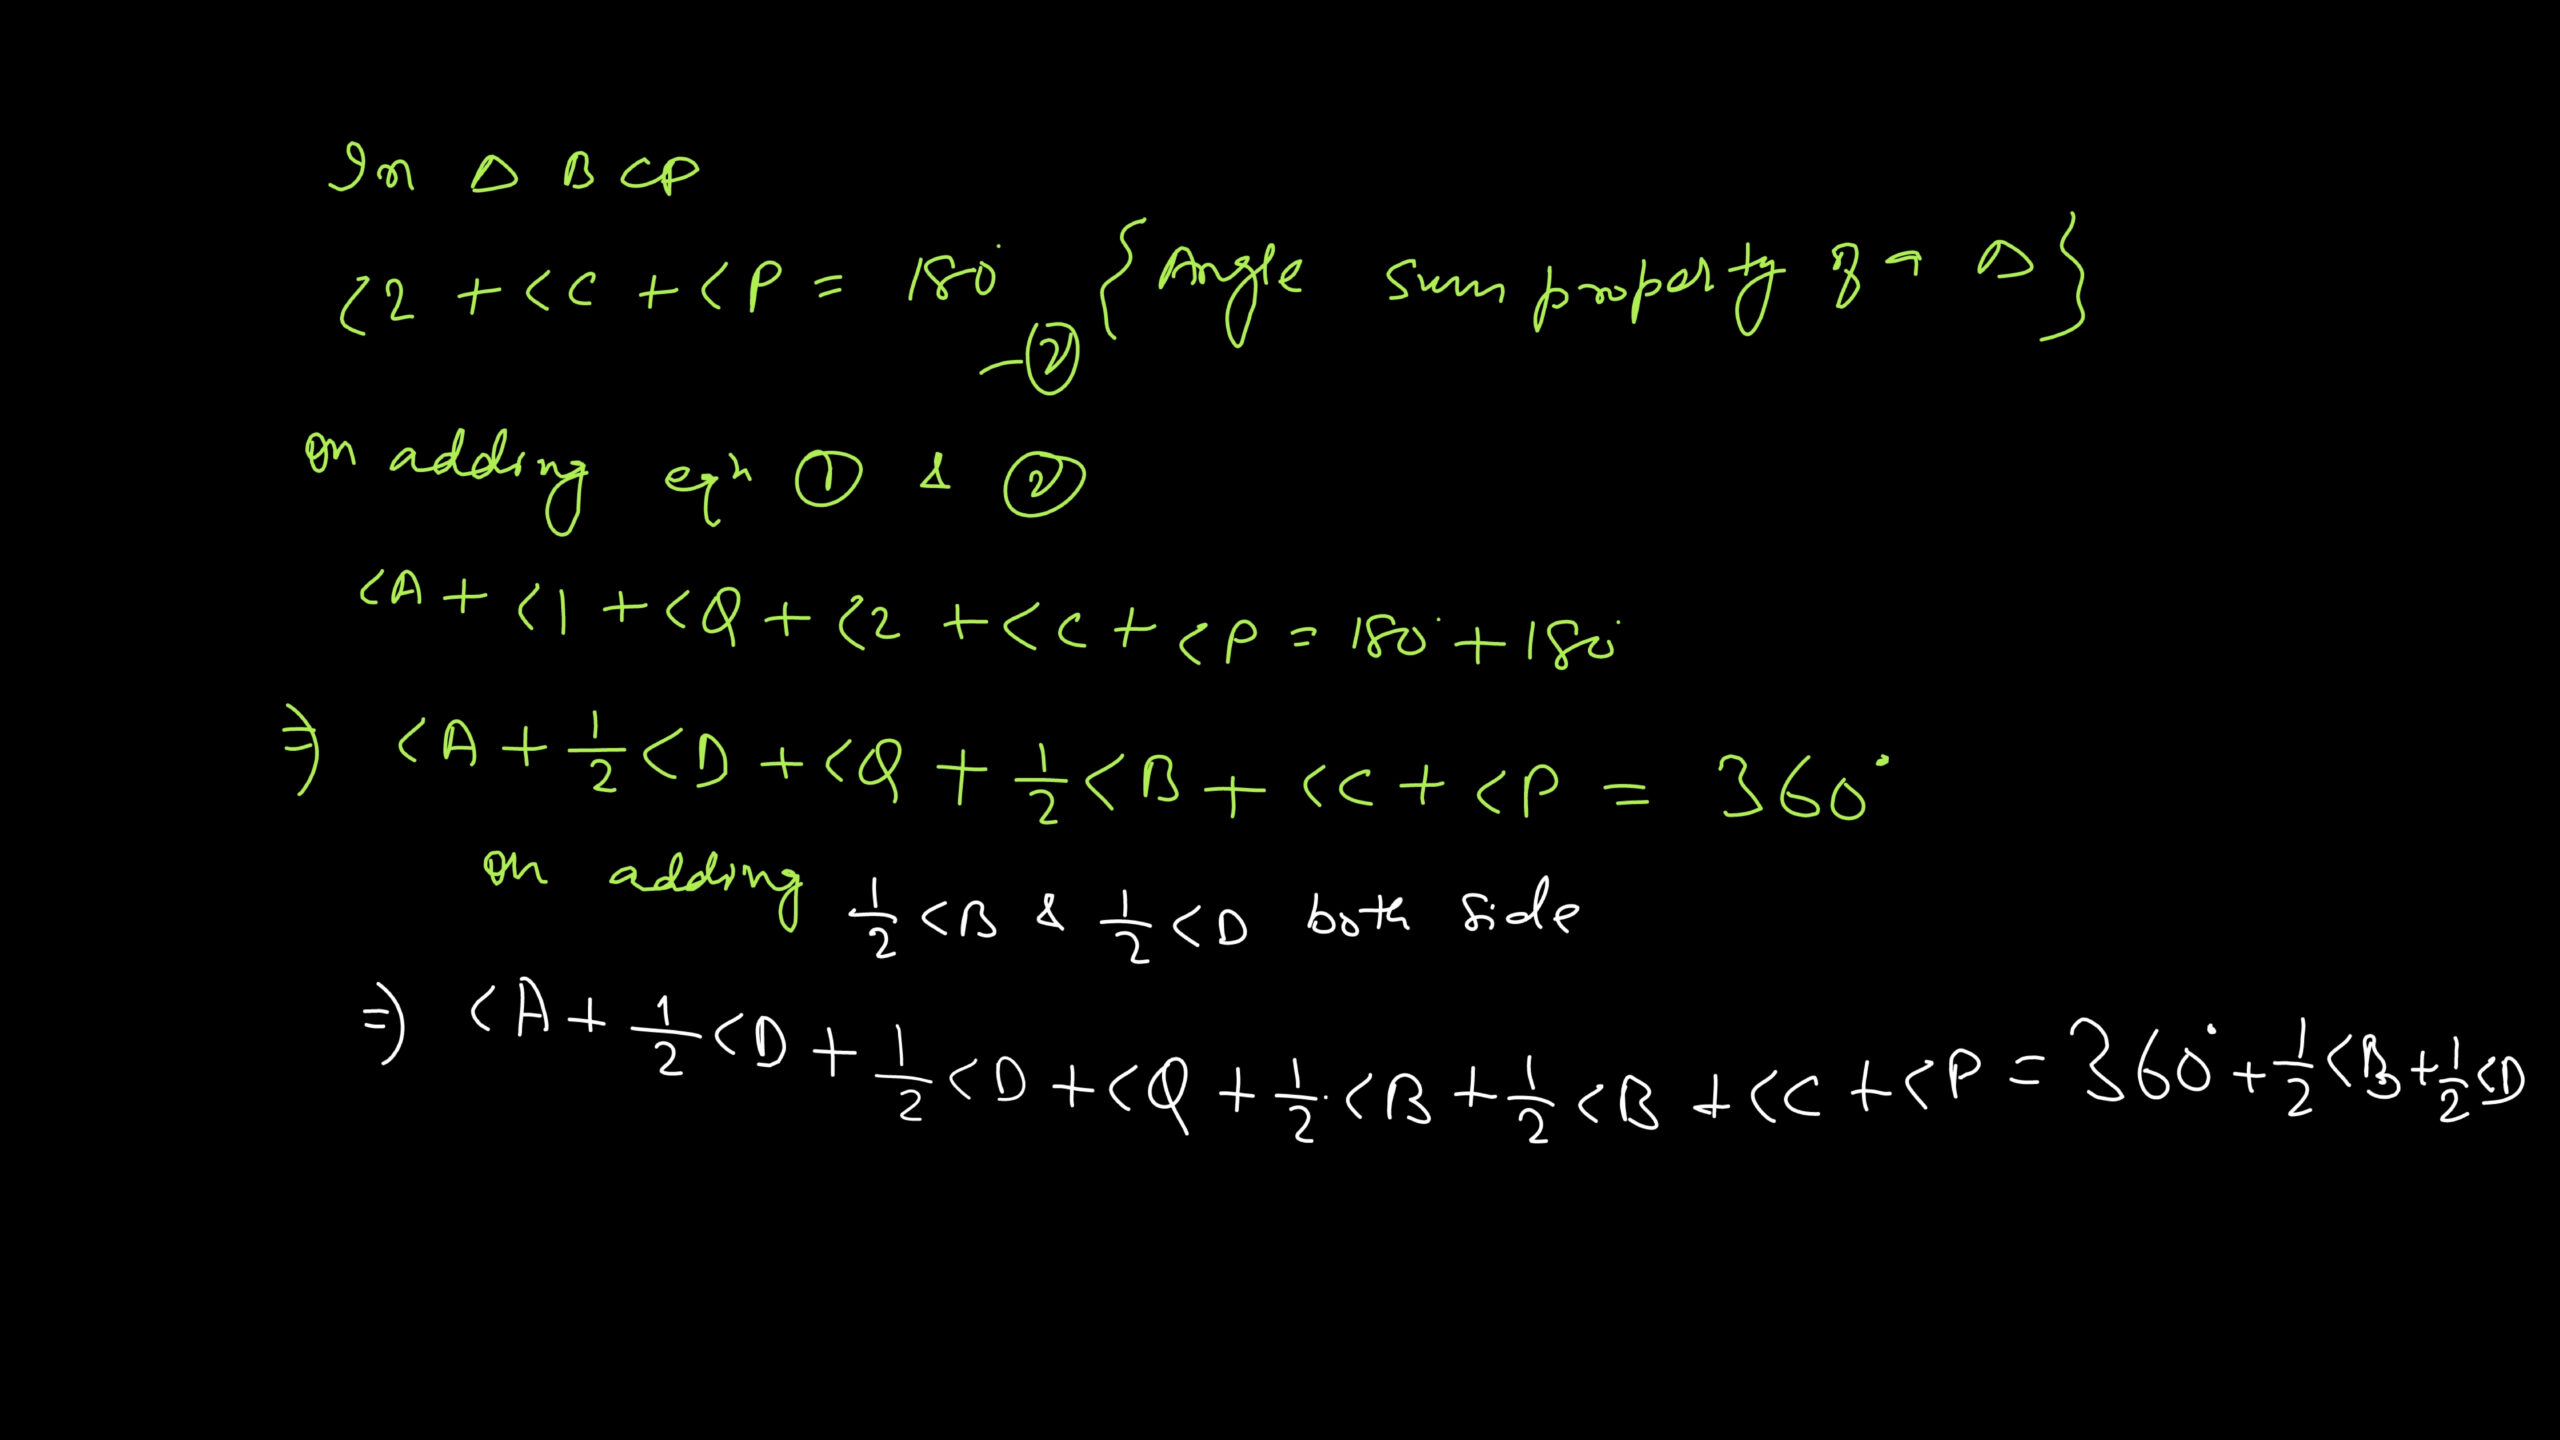 In Δ BCP
<2 + <C + <P = 180° {Angle sum property of a Δ}
—②
on adding eqn ① & ②
<A + <1 + <Q + <2 + <C + <P = 180° + 180°
⇒ <A + 1/2 <D + <Q + 1/2 <B + <C + <P = 360°
on adding 1/2 <B & 1/2 <D both side
⇒ <A + 1/2 <D + 1/2 <D + <Q + 1/2 <B + 1/2 <B + <C + <P = 360° + 1/2 <B + 1/2 <D